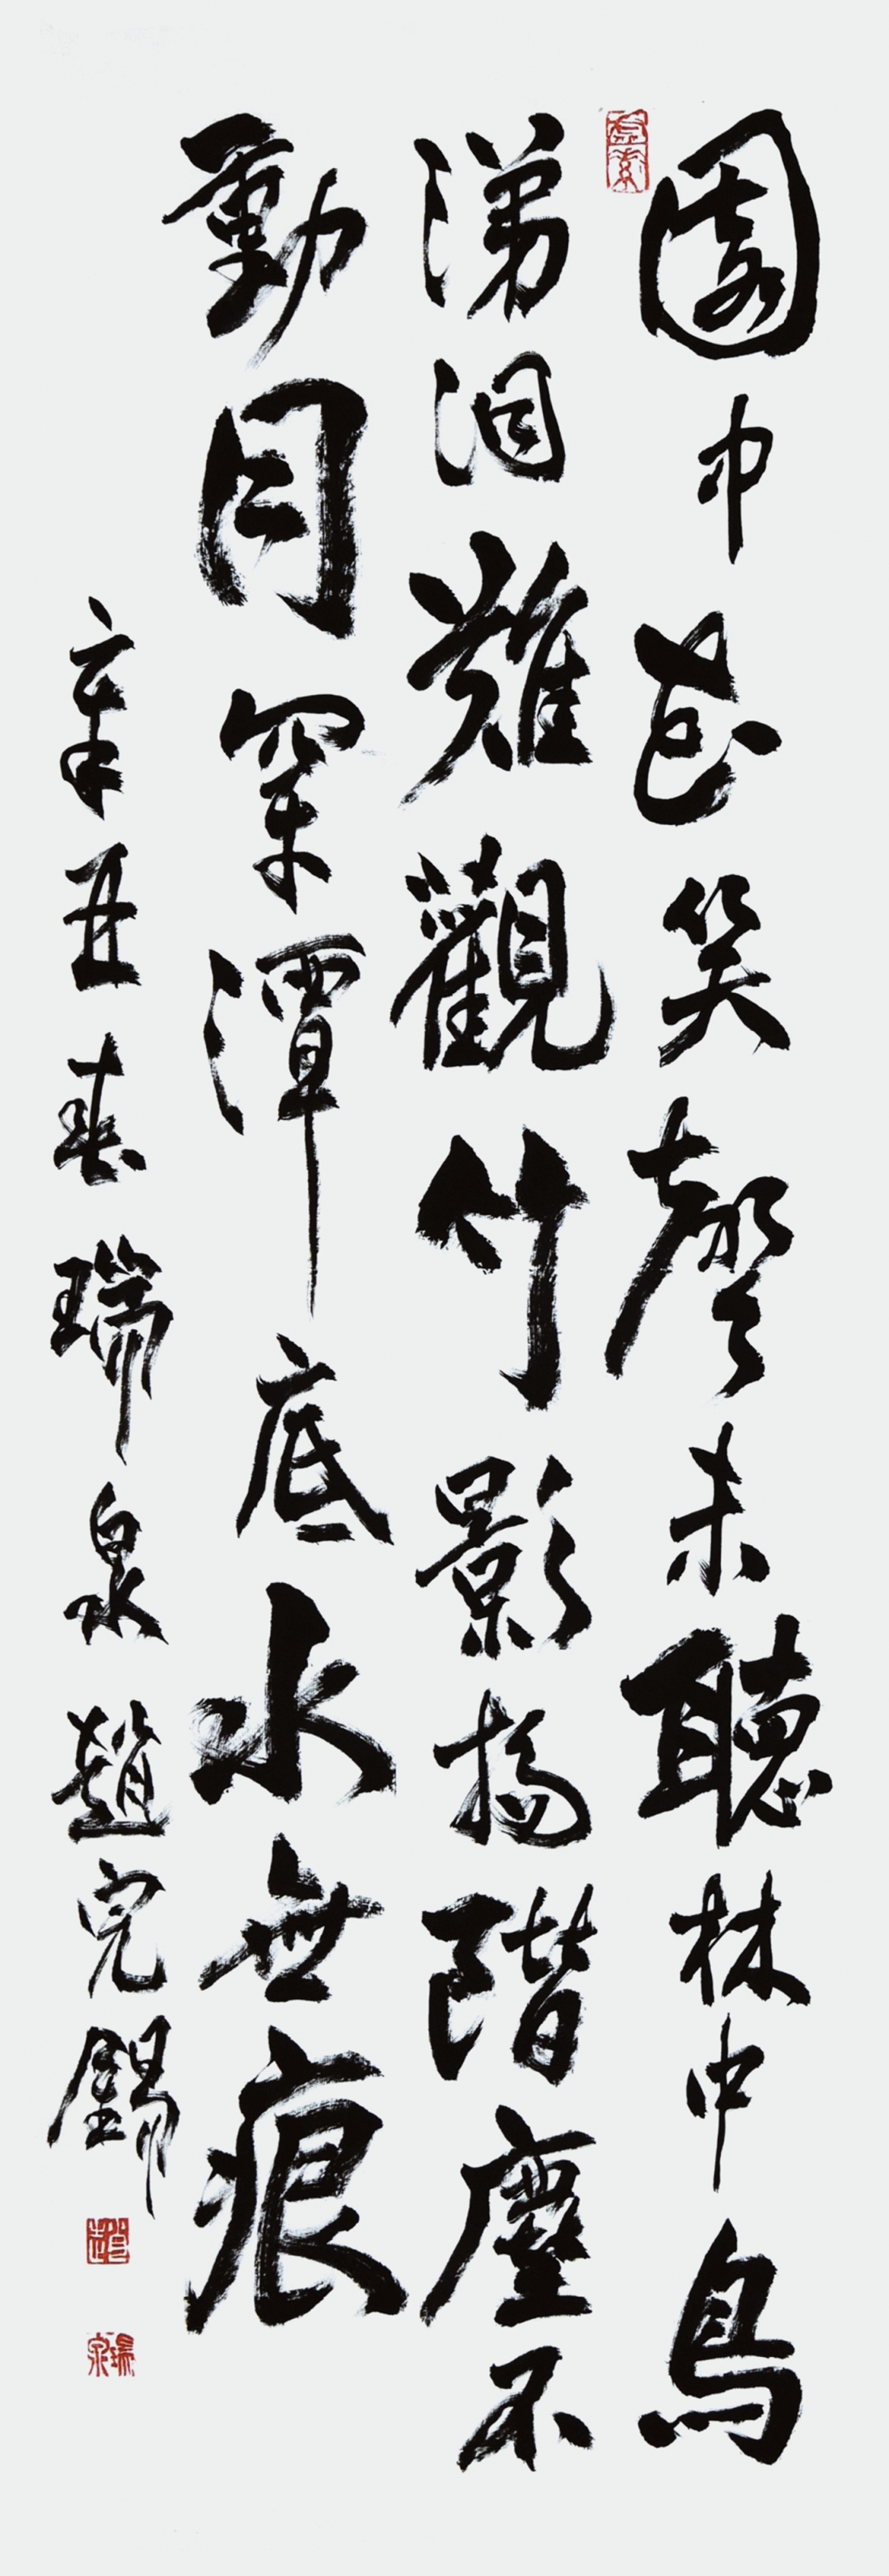 園中花笑聲未聽林中鳥
涕泪難觀竹影掃階塵不
動月穿潭底水無痕
辛丑春瑞泉趙完錫
瑞泉